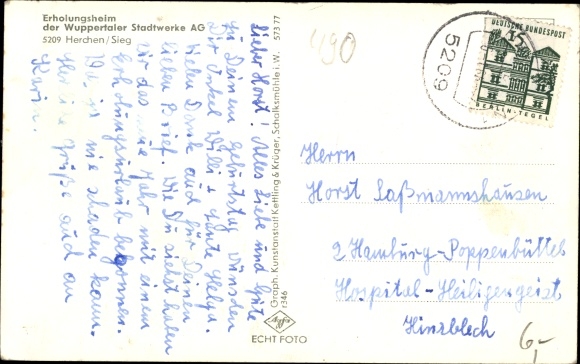 Erholungsheim
der Wuppertaler Stadtwerke AG
5209 Herchen/Sieg
Lieber Horst! Alles Liebe und Gute
zu Deinem Geburtstag wünschen
Dir Onkel Willi + Tante Helga.
Vielen Dank auch für Deinen
lieben Brief. Wie Du siehst haben
wir das neue Jahr mit einem
Erholungsurlaub begonnen.
was nie schaden kann.
Herzliche Grüße auch an
Karin.
Graph. Kunstanstalt Kettling & Krüger, Schalksmühle i.W. 573 77
r346
Agfa
ECHT FOTO
490
5209
DEUTSCHE BUNDESPOST
15
BERLIN-TEGEL
Herrn
Horst Laßmannshausen
2 Hamburg-Poppenbüttel
Hospital-Heiligengeist
Hinsbleck
6,-